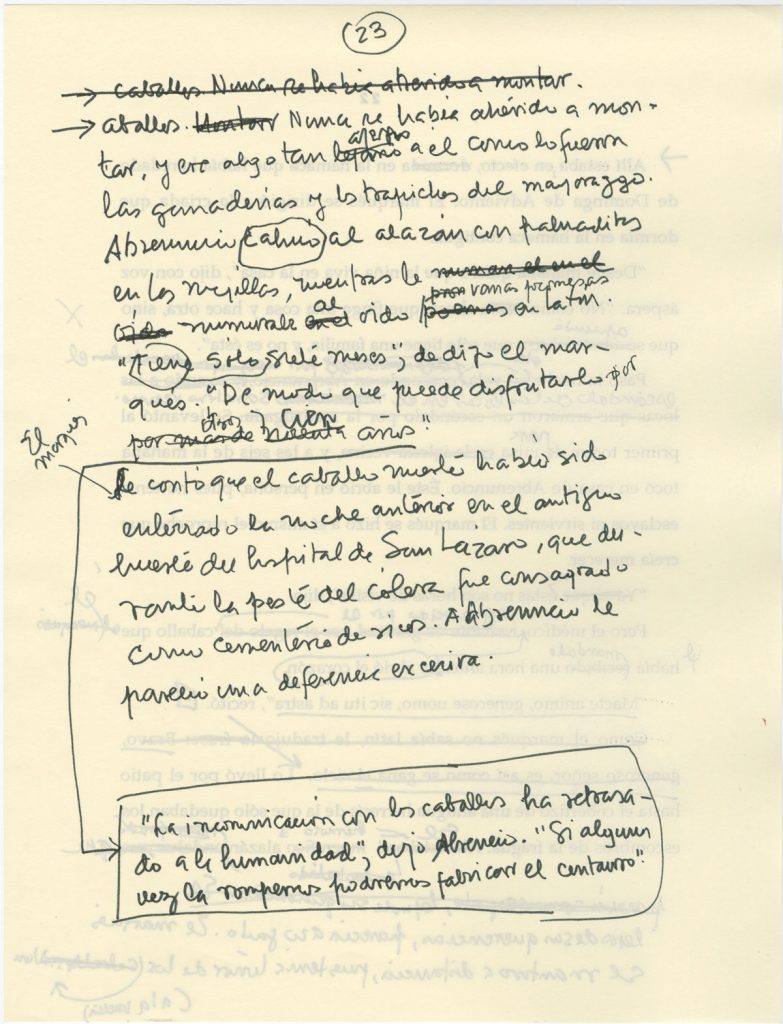 23
→ caballos Nunca se había atrevido a montar.
→ aballos. Montarr Nunca se había atrevido a mon-
ajeno
tar, y era algo tan a él como lo fueron
las ganaderías y los trapiches del mayorazgo.
Abrenuncio calmó al alazán con palmaditas
en las mejillas, mientras le murmuraba en el
vanas promesas
oído murmuraba al oído poemas en latín.
"Tiene solo siete meses", le dijo el mar-
qués. "De modo que puede disfrutarlo por
otros cien
por más de noventa años."
El
marqués
Le contó que el caballo muerto había sido
enterrado la noche anterior en el antiguo
huerto del hospital de San Lázaro, que du-
rante la peste del cólera fue consagrado
como cementerio de ricos. A Abrenuncio le
pareció una deferencia excesiva.
"La incomunicación con los caballos ha retrasa-
do a la humanidad", dijo Abrenuncio. "Si alguna
vez la rompemos podremos fabricar el centauro".